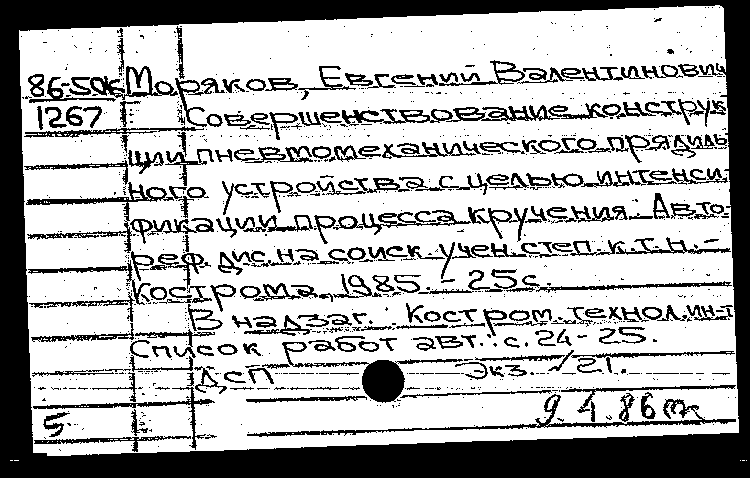 86-50к Моряков, Евгений Валентинович
1267 Совершенствование конструк
ции пневмомеханического прядиль
ного устройства с целью интенси-
фикации процесса кручения: Авто-
реф. дис. на соиск. учен. степ. к.т.н. -
Кострома, 1985. - 25с.
В надзаг.: Костром. технол. ин-т
Список работ авт.: с. 24-25.
ДСП Экз. √21.
5 9.4.86